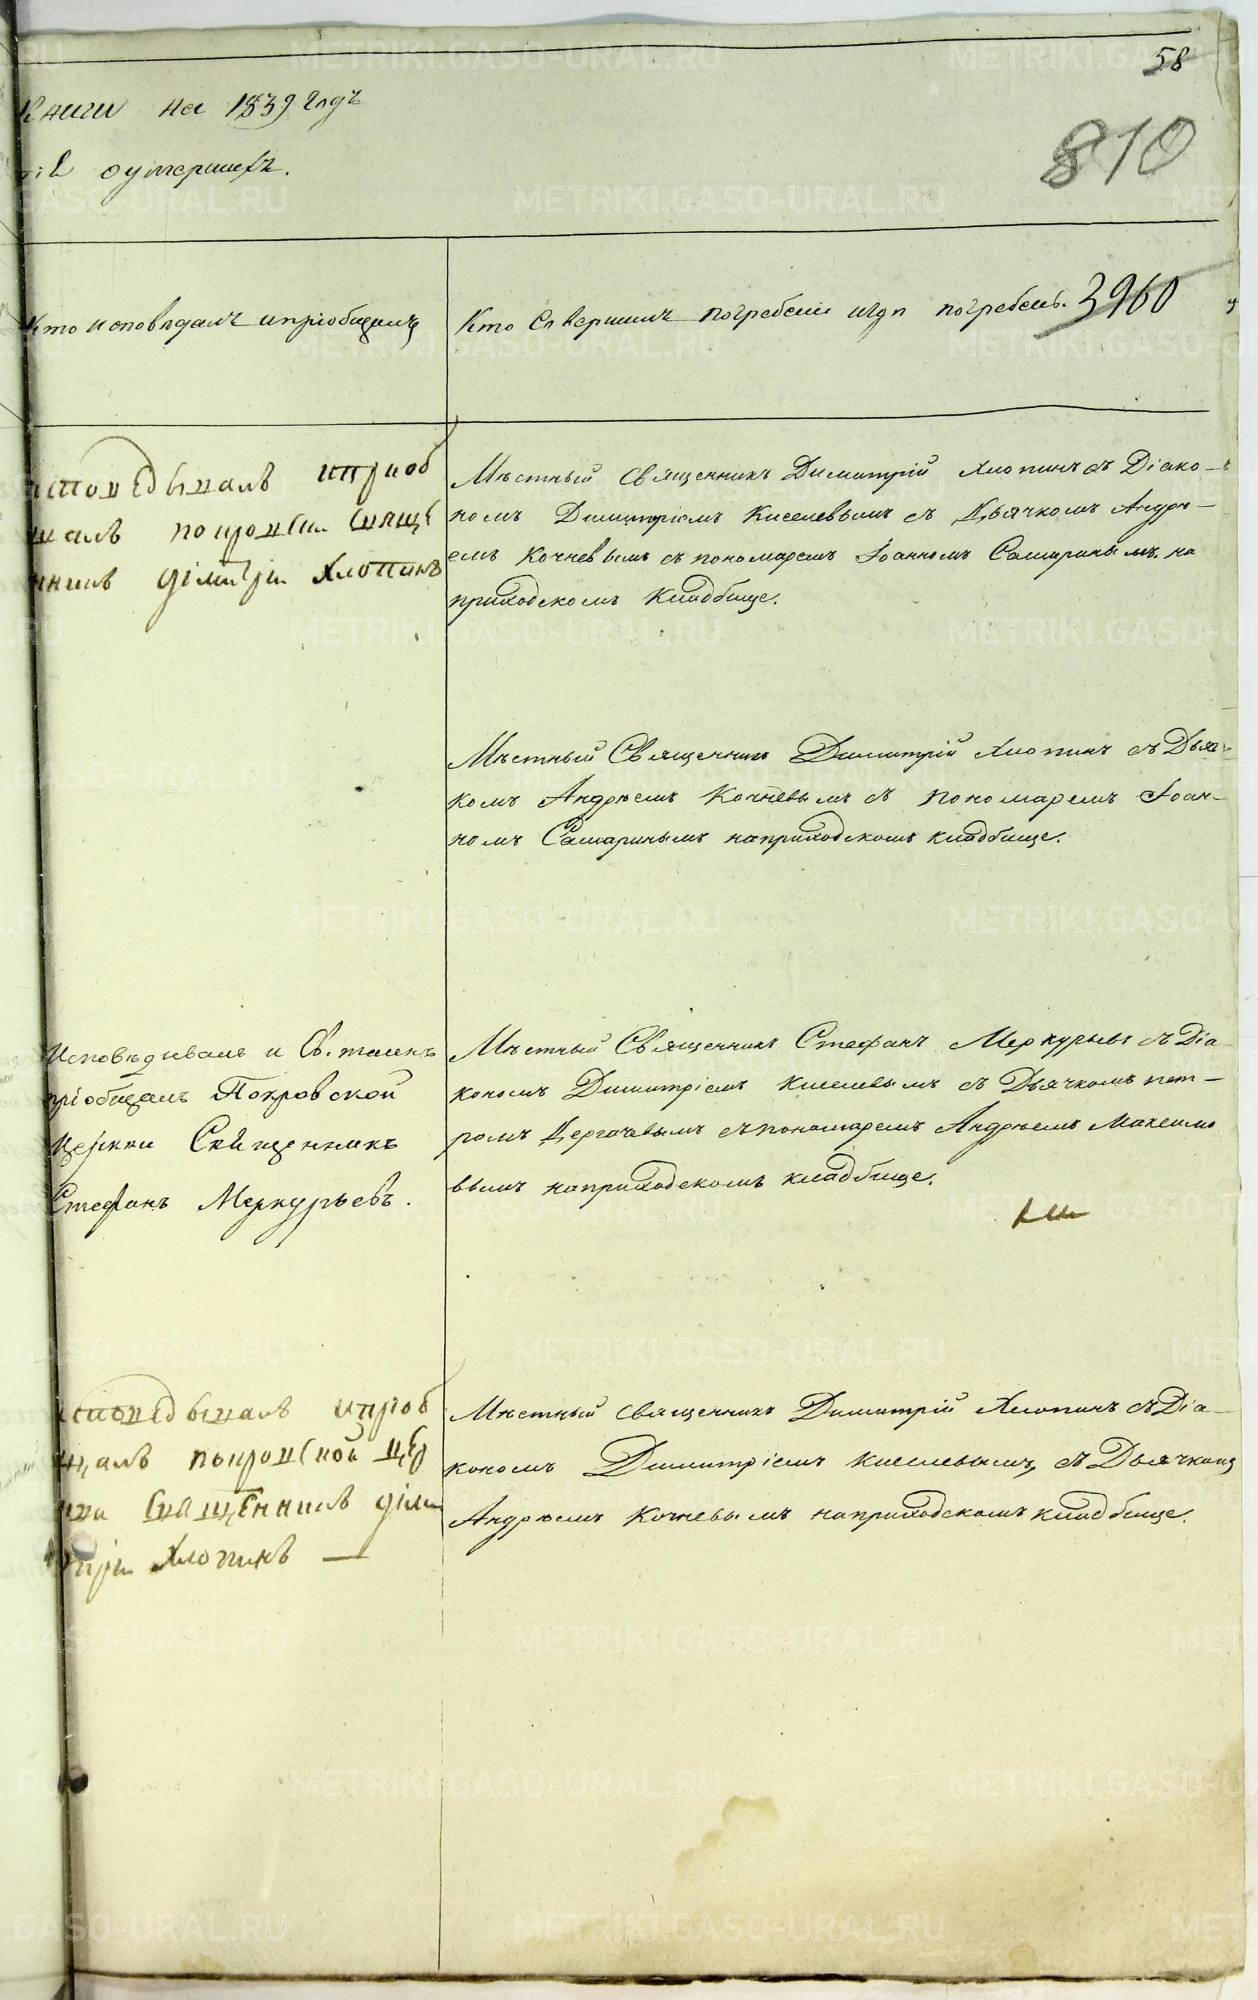 58
книги на 1839 годъ
810
оумершихъ.
Кто исповѣдалъ и пріобщалъ
Кто Совершилъ погребеніе и гдѣ погребенъ. 3960
исповѣдывалъ и приоб
щалъ покровски свяще
нникъ Дімитрiи Хлопинъ
Мѣстный Священникъ Димитрій Хлопинъ съ Діако-
номъ Димитріемъ Киселевымъ съ Дьячкомъ Андре-
емъ Кочневымъ съ пономаремъ Іоанномъ Самаринымъ на
приходскомъ Кладбище.
Мѣстный Священникъ Димитрій Хлопинъ съ Дьяч
комъ Андреемъ Кочневымъ съ пономаремъ Іоан-
номъ Самаринымъ на приходскомъ кладбище.
Исповѣдывалъ и Св. таинъ
пріобщалъ Покровской
церкви Священникъ
Стефанъ Меркурьевъ.
Мѣстный Священникъ Стефанъ Меркурьевъ съ Діа
кономъ Димитріемъ Киселевымъ съ Дьячкомъ пет-
ромъ Дергачевымъ съ пономаремъ Андреемъ Максимо
вымъ на приходскомъ кладбище.
исповѣдывалъ и приоб
щалъ покровской цер
кви священникъ Діми
трiи Хлопинъ —
Мѣстный священникъ Димитрій Хлопинъ съ Діа-
кономъ Димитріемъ Киселевымъ, съ Дьячкомъ
Андреемъ Кочневымъ на приходскомъ кладбище.
METRIKI.GASO-URAL.RU